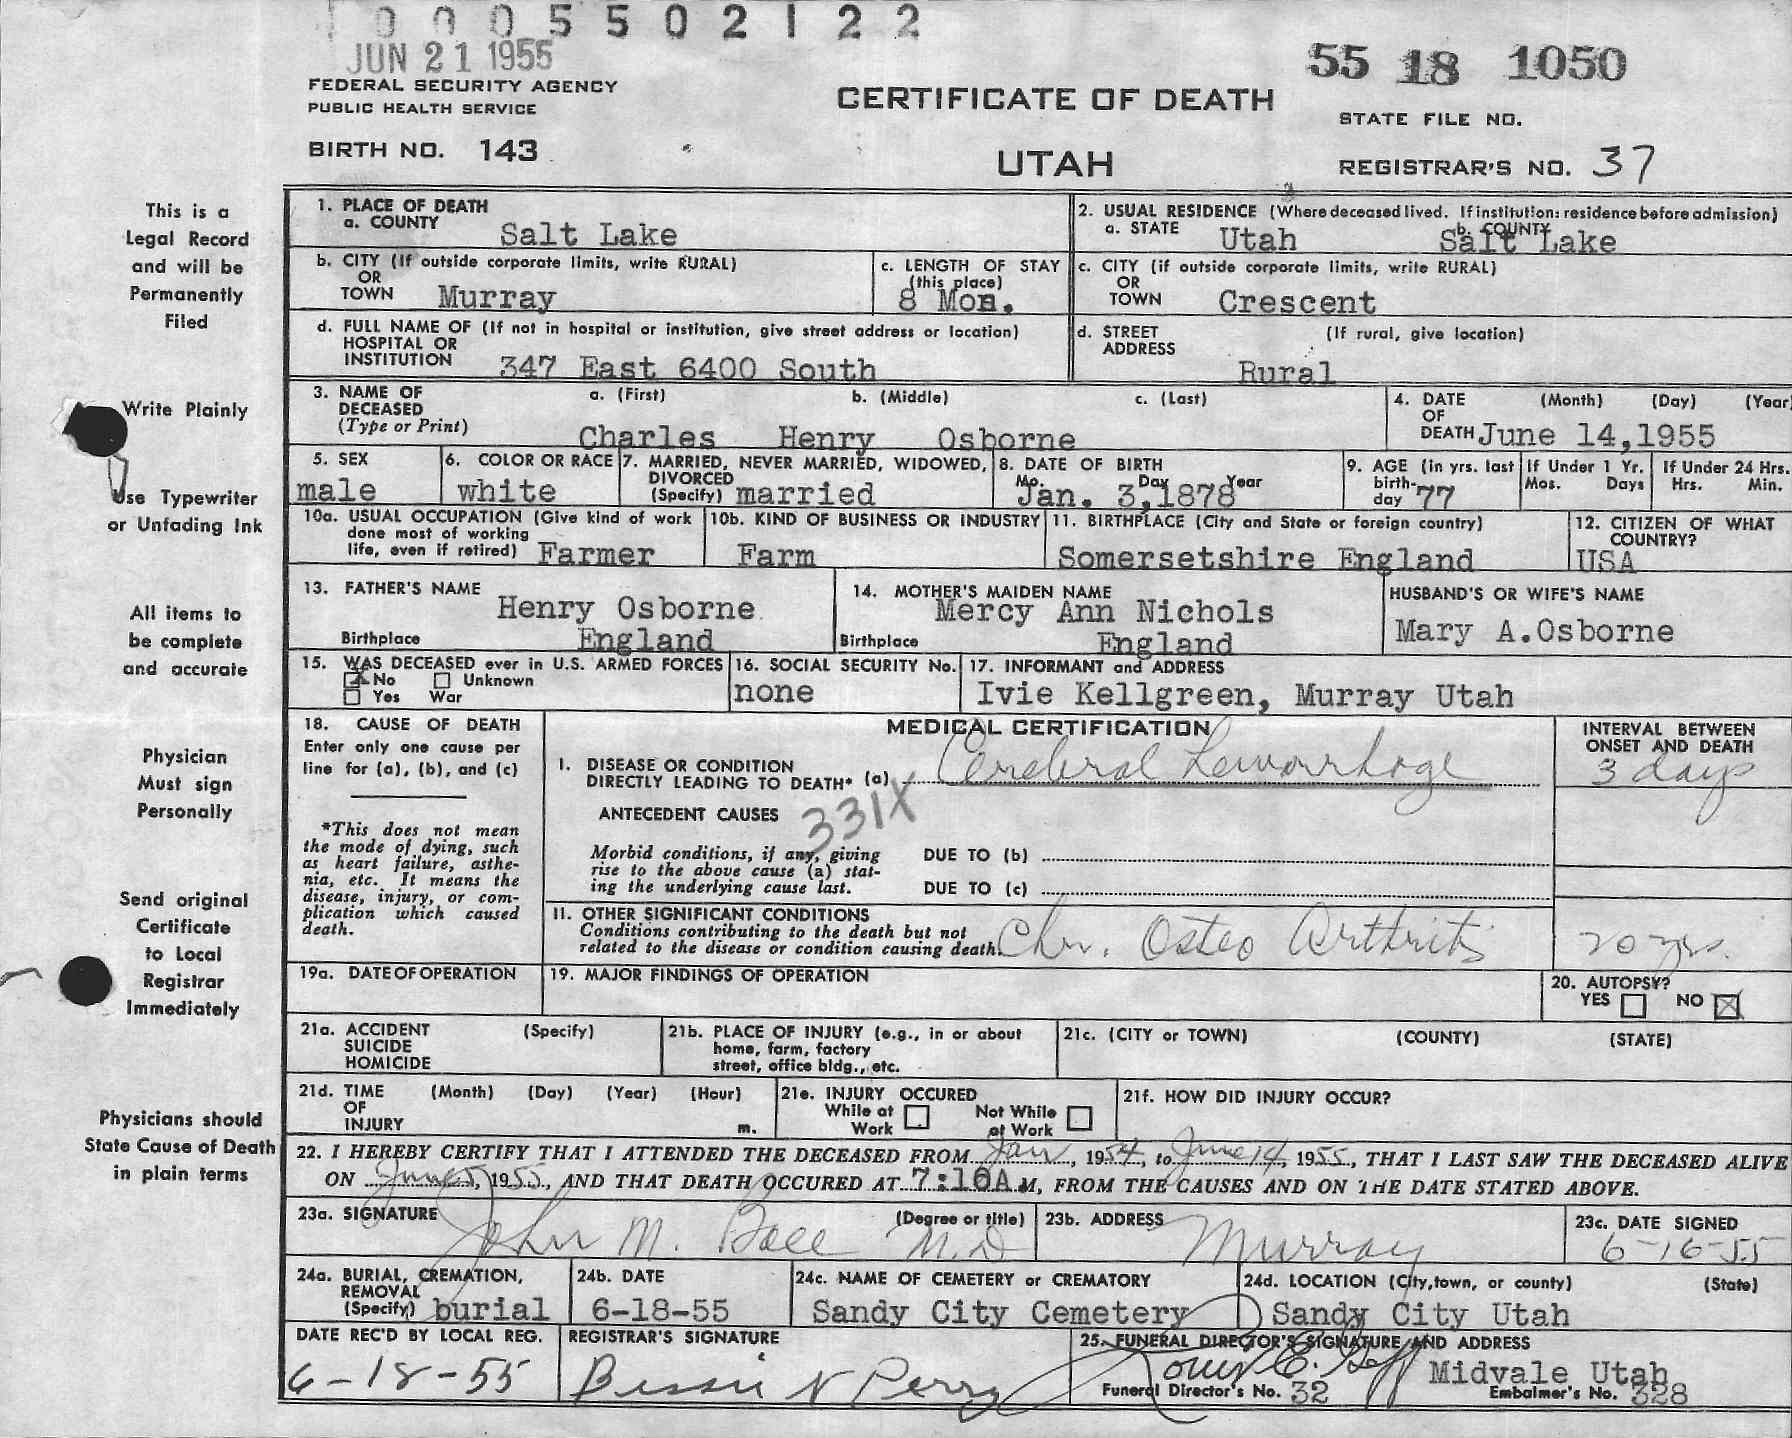 0005502122
JUN 21 1955
55 18 1050
FEDERAL SECURITY AGENCY
PUBLIC HEALTH SERVICE
CERTIFICATE OF DEATH
STATE FILE NO.
BIRTH NO. 143
UTAH
REGISTRAR'S NO. 37
This is a
Legal Record
and will be
Permanently
Filed
Write Plainly
Use Typewriter
or Unfading Ink
All items to
be complete
and accurate
Physician
Must sign
Personally
Send original
Certificate
to Local
Registrar
Immediately
Physicians should
State Cause of Death
in plain terms
1. PLACE OF DEATH
a. COUNTY Salt Lake
2. USUAL RESIDENCE (Where deceased lived. If institution: residence before admission)
a. STATE Utah b. COUNTY Salt Lake
b. CITY (If outside corporate limits, write RURAL)
OR
TOWN Murray
c. LENGTH OF STAY
(this place)
8 Mon.
c. CITY (if outside corporate limits, write RURAL)
OR
TOWN Crescent
d. FULL NAME OF (If not in hospital or institution, give street address or location)
HOSPITAL OR
INSTITUTION 347 East 6400 South
d. STREET (If rural, give location)
ADDRESS
Rural
3. NAME OF a. (First) b. (Middle) c. (Last)
DECEASED
(Type or Print) Charles Henry Osborne
4. DATE (Month) (Day) (Year)
OF
DEATH June 14, 1955
5. SEX
male
6. COLOR OR RACE
white
7. MARRIED, NEVER MARRIED, WIDOWED,
DIVORCED
(Specify) married
8. DATE OF BIRTH
Mo. Day Year
Jan. 3, 1878
9. AGE (in yrs. last
birth-
day 77
If Under 1 Yr.
Mos. Days
If Under 24 Hrs.
Hrs. Min.
10a. USUAL OCCUPATION (Give kind of work
done most of working
life, even if retired) Farmer
10b. KIND OF BUSINESS OR INDUSTRY
Farm
11. BIRTHPLACE (City and State or foreign country)
Somersetshire England
12. CITIZEN OF WHAT
COUNTRY?
USA
13. FATHER'S NAME
Henry Osborne
Birthplace England
14. MOTHER'S MAIDEN NAME
Mercy Ann Nichols
Birthplace England
HUSBAND'S OR WIFE'S NAME
Mary A.Osborne
15. WAS DECEASED ever in U.S. ARMED FORCES
X No Unknown
Yes War
16. SOCIAL SECURITY No.
none
17. INFORMANT and ADDRESS
Ivie Kellgreen, Murray Utah
18. CAUSE OF DEATH
Enter only one cause per
line for (a), (b), and (c)
*This does not mean
the mode of dying, such
as heart failure, asthe-
nia, etc. It means the
disease, injury, or com-
plication which caused
death.
MEDICAL CERTIFICATION
I. DISEASE OR CONDITION
DIRECTLY LEADING TO DEATH* (a) Cerebral hemorrhage
ANTECEDENT CAUSES 331X
Morbid conditions, if any, giving
rise to the above cause (a) stat-
ing the underlying cause last.
DUE TO (b)
DUE TO (c)
II. OTHER SIGNIFICANT CONDITIONS
Conditions contributing to the death but not
related to the disease or condition causing death. Chr. Osteo Arthritis
INTERVAL BETWEEN
ONSET AND DEATH
3 days
20 yrs.
19a. DATE OF OPERATION
19. MAJOR FINDINGS OF OPERATION
20. AUTOPSY?
YES NO X
21a. ACCIDENT (Specify)
SUICIDE
HOMICIDE
21b. PLACE OF INJURY (e.g., in or about
home, farm, factory
street, office bldg., etc.
21c. (CITY or TOWN) (COUNTY) (STATE)
21d. TIME (Month) (Day) (Year) (Hour)
OF
INJURY m.
21e. INJURY OCCURED
While at Not While
Work at Work
21f. HOW DID INJURY OCCUR?
22. I HEREBY CERTIFY THAT I ATTENDED THE DECEASED FROM Jan, 1954, to June 14, 1955, THAT I LAST SAW THE DECEASED ALIVE
ON June 5, 1955, AND THAT DEATH OCCURED AT 7:10A M, FROM THE CAUSES AND ON THE DATE STATED ABOVE.
23a. SIGNATURE (Degree or title)
John M. Bace M.D
23b. ADDRESS
Murray
23c. DATE SIGNED
6-16-55
24a. BURIAL, CREMATION,
REMOVAL
(Specify) burial
24b. DATE
6-18-55
24c. NAME OF CEMETERY or CREMATORY
Sandy City Cemetery
24d. LOCATION (City, town, or county) (State)
Sandy City Utah
DATE REC'D BY LOCAL REG.
6-18-55
REGISTRAR'S SIGNATURE
Bessie N Perry
25. FUNERAL DIRECTOR'S SIGNATURE AND ADDRESS
Midvale Utah
Funeral Director's No. 32 Embalmer's No. 328